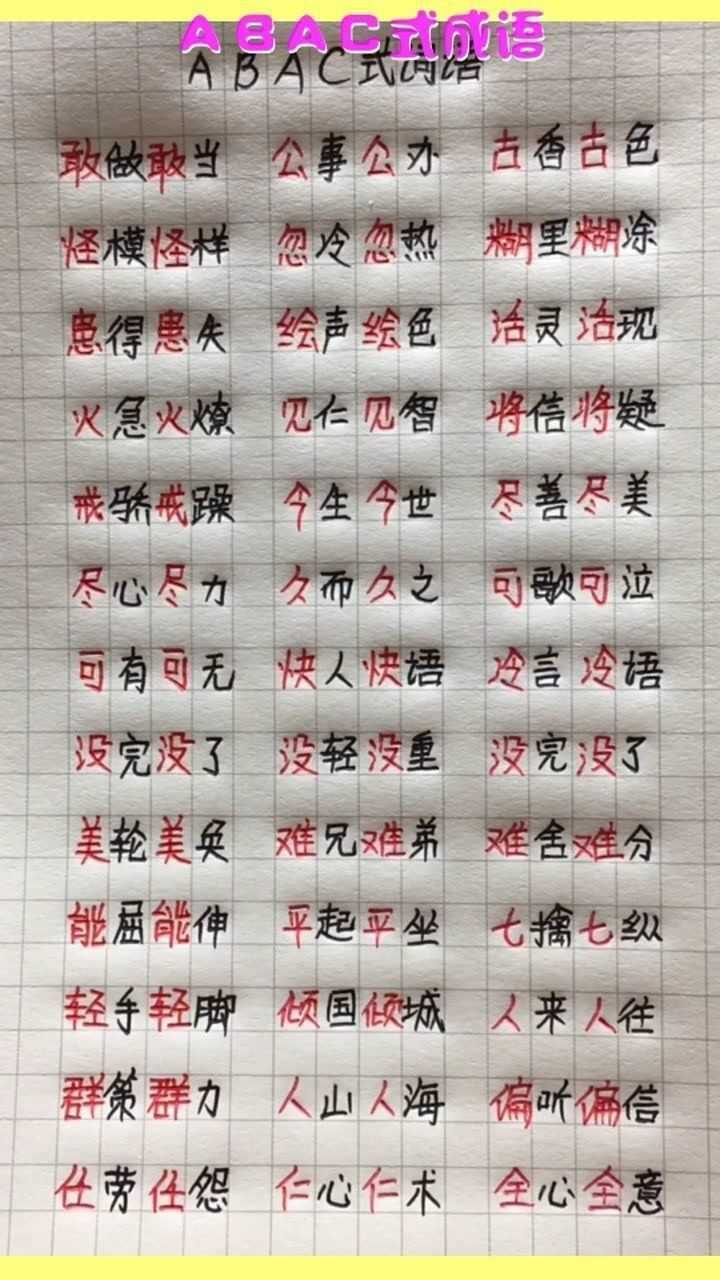 ABAC式成语
ABAC式词语
敢做敢当 公事公办 古香古色
怪模怪样 忽冷忽热 糊里糊涂
患得患失 绘声绘色 活灵活现
火急火燎 见仁见智 将信将疑
戒骄戒躁 今生今世 尽善尽美
尽心尽力 久而久之 可歌可泣
可有可无 快人快语 冷言冷语
没完没了 没轻没重 没完没了
美轮美奂 难兄难弟 难舍难分
能屈能伸 平起平坐 七擒七纵
轻手轻脚 倾国倾城 人来人往
群策群力 人山人海 偏听偏信
任劳任怨 仁心仁术 全心全意